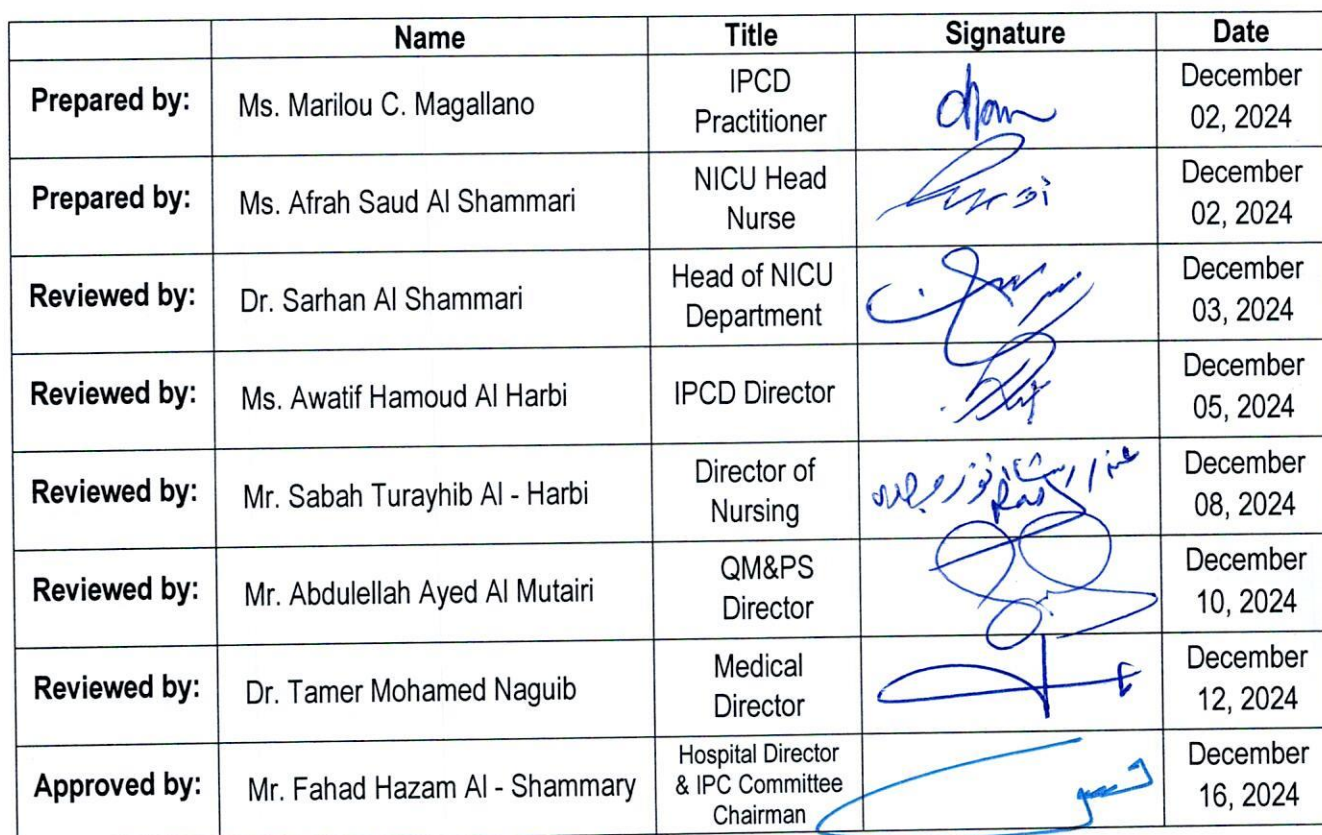 Name Title Signature Date
Prepared by: Ms. Marilou C. Magallano IPCD Practitioner December 02, 2024
Prepared by: Ms. Afrah Saud Al Shammari NICU Head Nurse December 02, 2024
Reviewed by: Dr. Sarhan Al Shammari Head of NICU Department December 03, 2024
Reviewed by: Ms. Awatif Hamoud Al Harbi IPCD Director December 05, 2024
Reviewed by: Mr. Sabah Turayhib Al - Harbi Director of Nursing December 08, 2024
Reviewed by: Mr. Abdulellah Ayed Al Mutairi QM&PS Director December 10, 2024
Reviewed by: Dr. Tamer Mohamed Naguib Medical Director December 12, 2024
Approved by: Mr. Fahad Hazam Al - Shammary Hospital Director & IPC Committee Chairman December 16, 2024